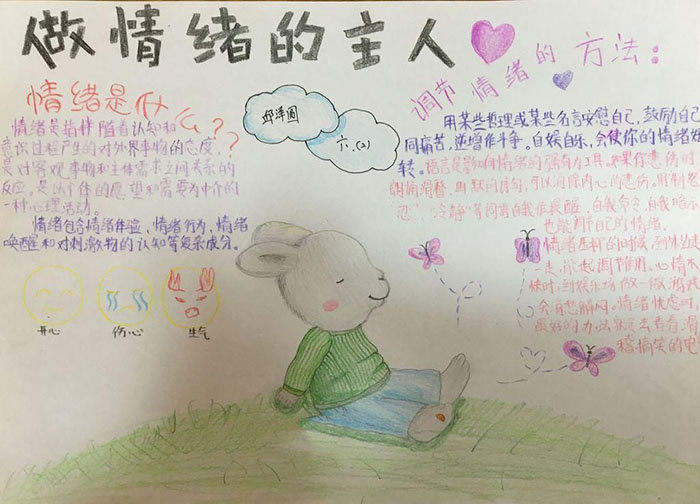 做情绪的主人
情绪是什么??
情绪是指伴随着认知和
意识过程产生的对外界事物的态度,
是对客观事物和主体需求之间关系的
反应,是以个体的愿望和需要为中介的
一种心理活动。
情绪包含情绪体验,情绪行为,情绪
唤醒和对刺激物的认知等复杂成分。
开心
伤心
生气
六.(2)
调节情绪的方法:
用某些哲理或某些名言安慰自己,鼓励自己
同痛苦,逆境作斗争。自娱自乐,会使你的情绪好
转。语言是影响情绪的强有力工具。如果你悲伤时
朗诵滑稽,幽默的诗句,可以消除内心的悲伤。用"制怒"
"冷静"等词语自我提醒,自我命令,自我暗示
也能调节自己的情绪。
情绪压抑的时候,到外边走
一走,能起调节作用。心情不
快时,到娱乐场做一做游戏
会消愁解闷。情绪忧虑时,
最好的办法就是去看看滑
稽搞笑的电